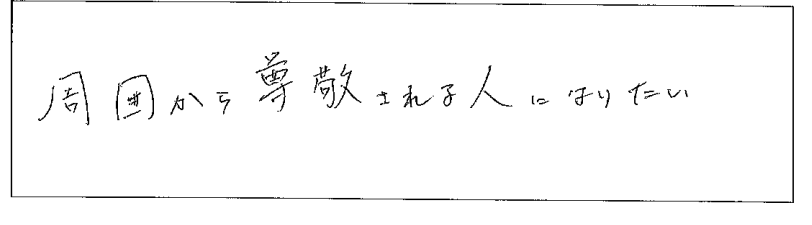 周囲から尊敬される人になりたい